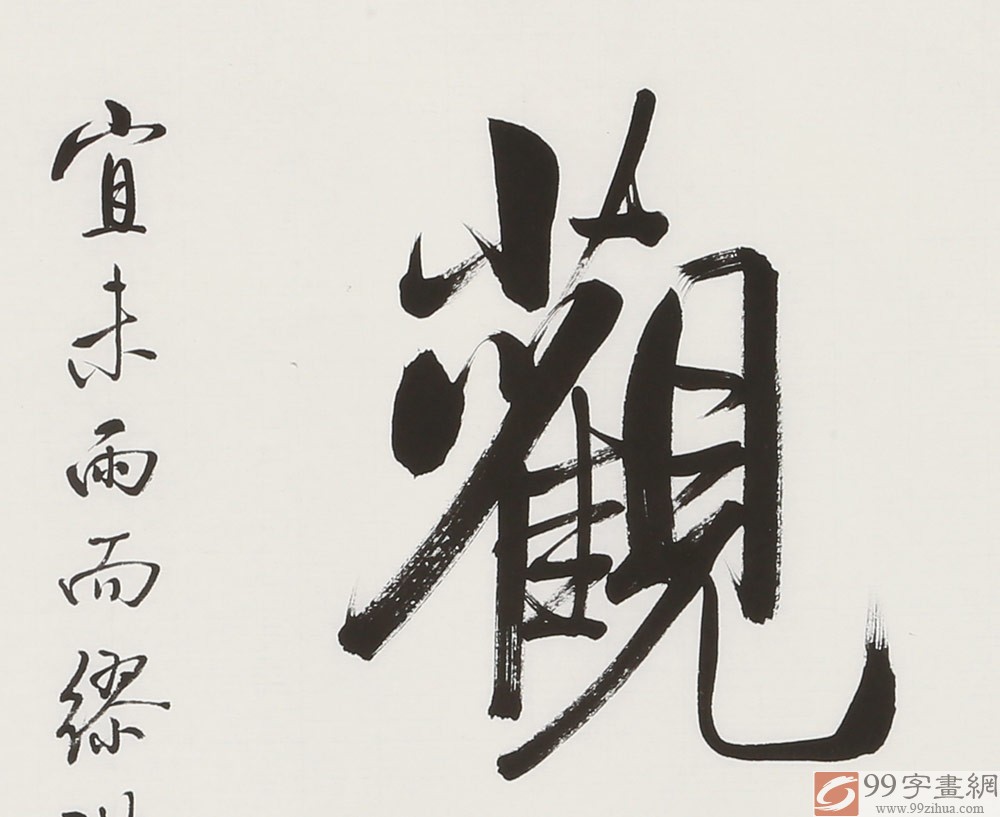 觀
宜未雨而繆
99字畫網
www.99zihua.com